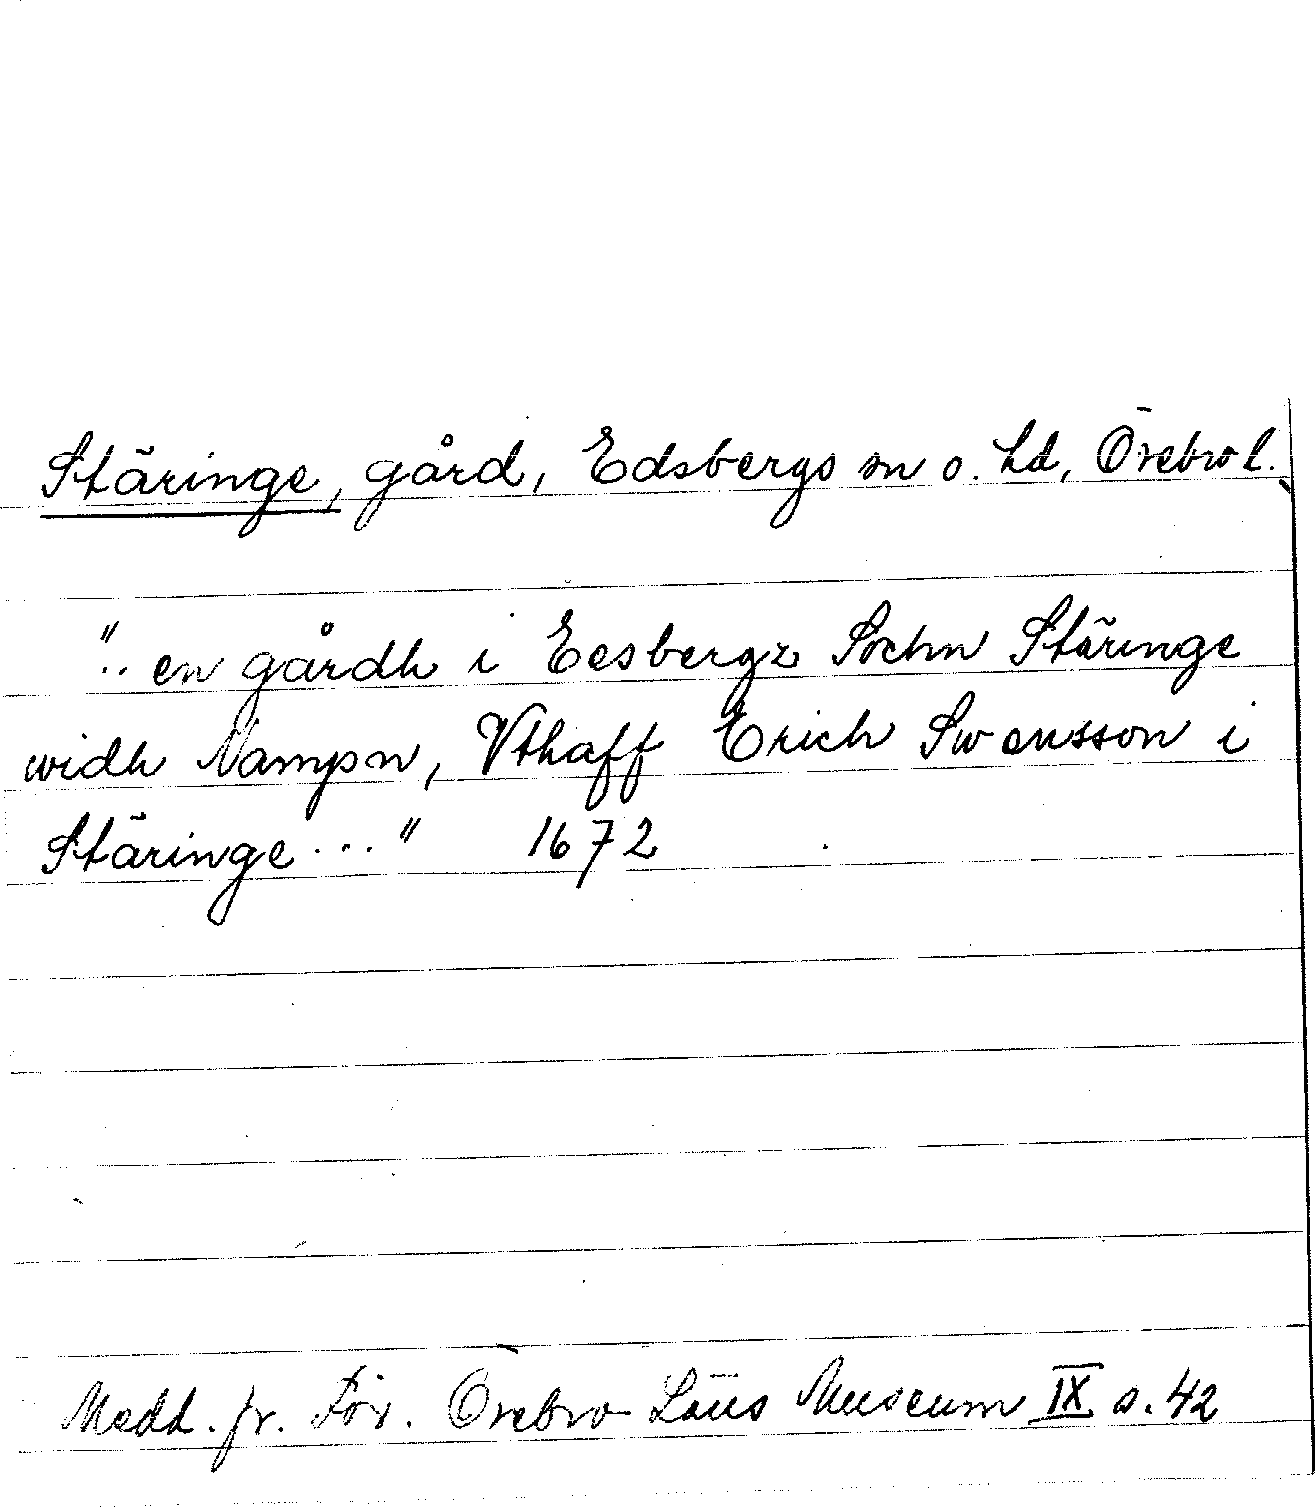 Stäringe, gård, Edsbergs sn o. hd, Örebro l.
".. en gårdh i Eesbergz Sochn Stäringe
widh Nampn, Vthaff Erich Swensson i
Stäringe ..." 1672
Medd. fr. För. Örebro Läns Museum IX s. 42